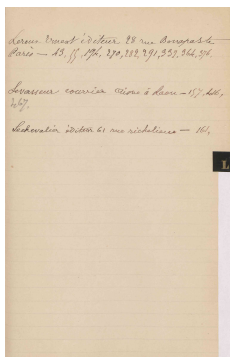 Leroux Ernest éditeur 28 rue Bonaparte
Paris — 43, 55, 194, 270, 282, 291, 339, 344, 374.
Levasseur ouvrier à Laon — 157,
267.
Lechevalier éditeur 61 rue richelieu — 161,
L